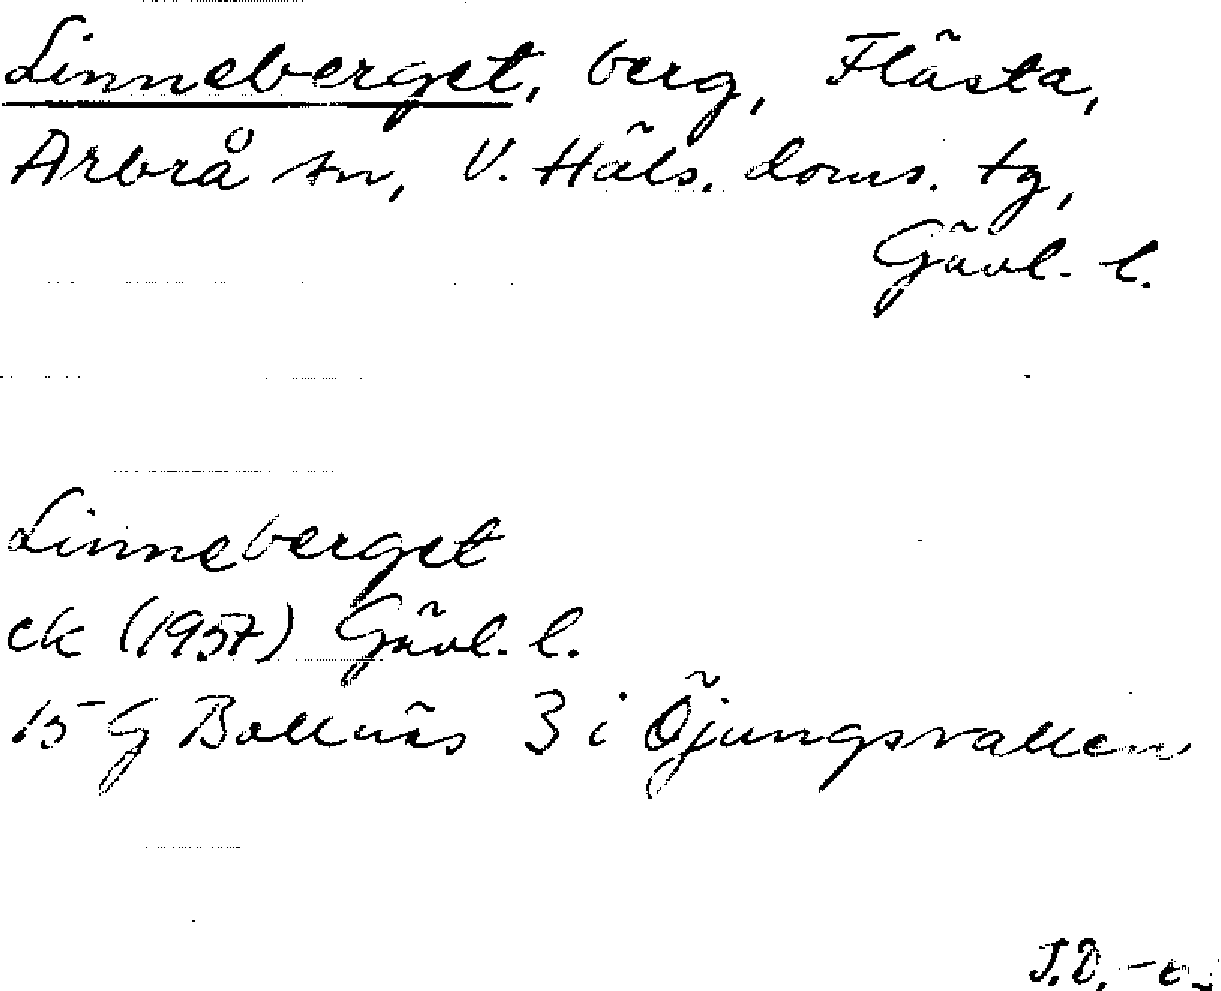 Linneberget, berg, Flästa,
Arbrå sn, V. Häls. doms. tg,
Gävl. l.
Linneberget
ek (1957) Gävl. l.
15 G Bollnäs 3 i Öjungsvallen